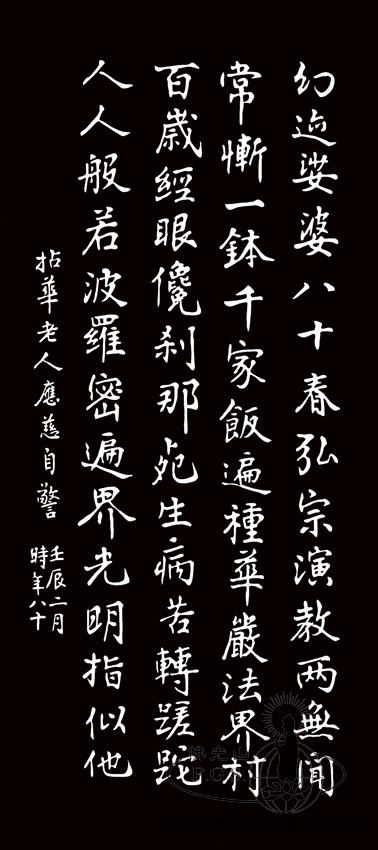 幻迹娑婆八十春弘宗演教两無聞
常慚一鉢千家飯遍種華嚴法界村
百歲經眼儳刹那生病苦轉蹉跎
人人般若波羅密遍界光明指似他
拈華老人應慈自警
壬辰二月
時年八十
佛光山